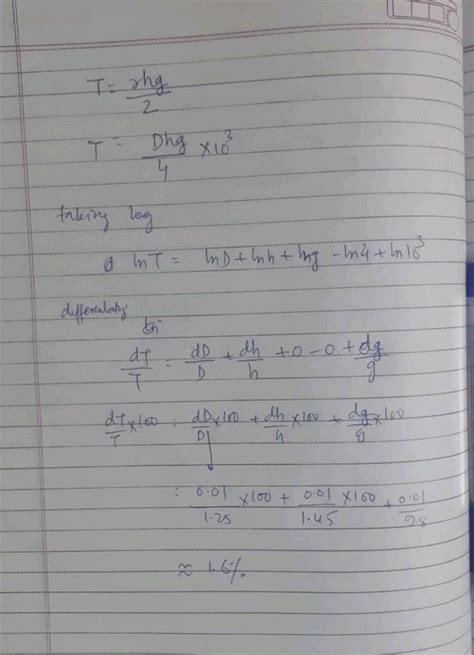 T = rhg/2
T = Dhg/4 ×10³
taking log
lnT = lnD + lnh + lng - ln4 + ln10³
differentiating
dT/T = dD/D + dh/h + 0 - 0 + dg/g
dT/T ×100 = dD/D ×100 + dh/h ×100 + dg/g ×100
= 0.01/1.25 ×100 + 0.01/1.45 ×100 + 0.01/9.8
≈ 1.6%